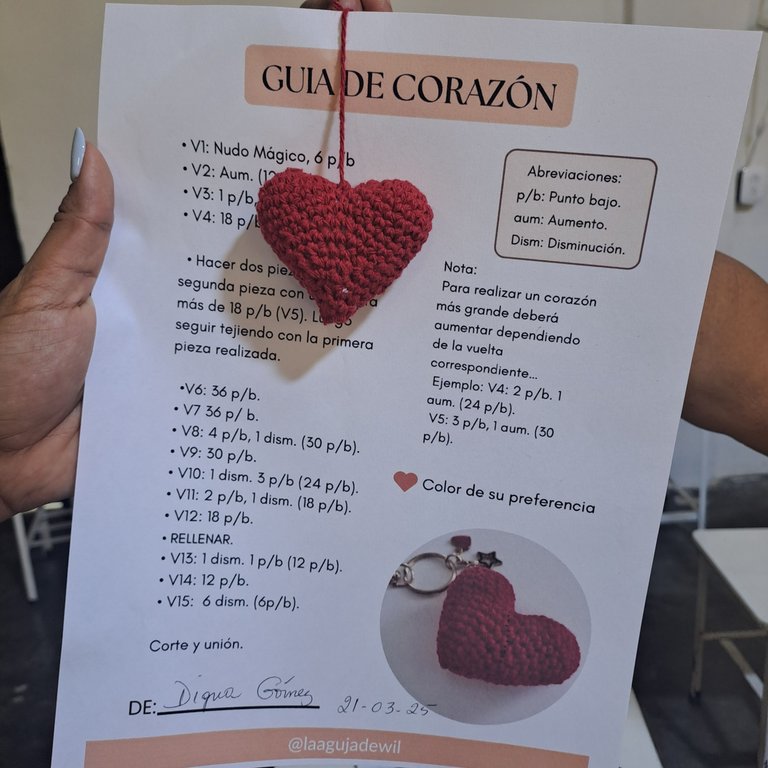 GUIA DE CORAZÓN
• V1: Nudo Mágico, 6 p/b
• V2: Aum. (12
• V3: 1 p/b,
• V4: 18 p/b
• Hacer dos
segunda pieza con
más de 18 p/b (V5).
seguir tejiendo con la primera
pieza realizada.
•V6: 36 p/b.
• V7 36 p/ b.
• V8: 4 p/b, 1 dism. (30 p/b).
• V9: 30 p/b.
• V10: 1 dism. 3 p/b (24 p/b).
• V11: 2 p/b, 1 dism. (18 p/b).
• V12: 18 p/b.
• RELLENAR.
• V13: 1 dism. 1 p/b (12 p/b).
• V14: 12 p/b.
• V15: 6 dism. (6p/b).
Corte y unión.
Abreviaciones:
p/b: Punto bajo.
aum: Aumento.
Dism: Disminución.
Nota:
Para realizar un corazón
más grande deberá
aumentar dependiendo
de la vuelta
correspondiente...
Ejemplo: V4: 2 p/b. 1
aum. (24 p/b).
V5: 3 p/b, 1 aum. (30
p/b).
Color de su preferencia
DE: Digna Gómez 21-03-25
@laagujadewil